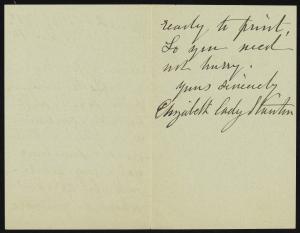 ready to print,
So you need
not hurry.
yours sincerely
Elizabeth Cady Stanton